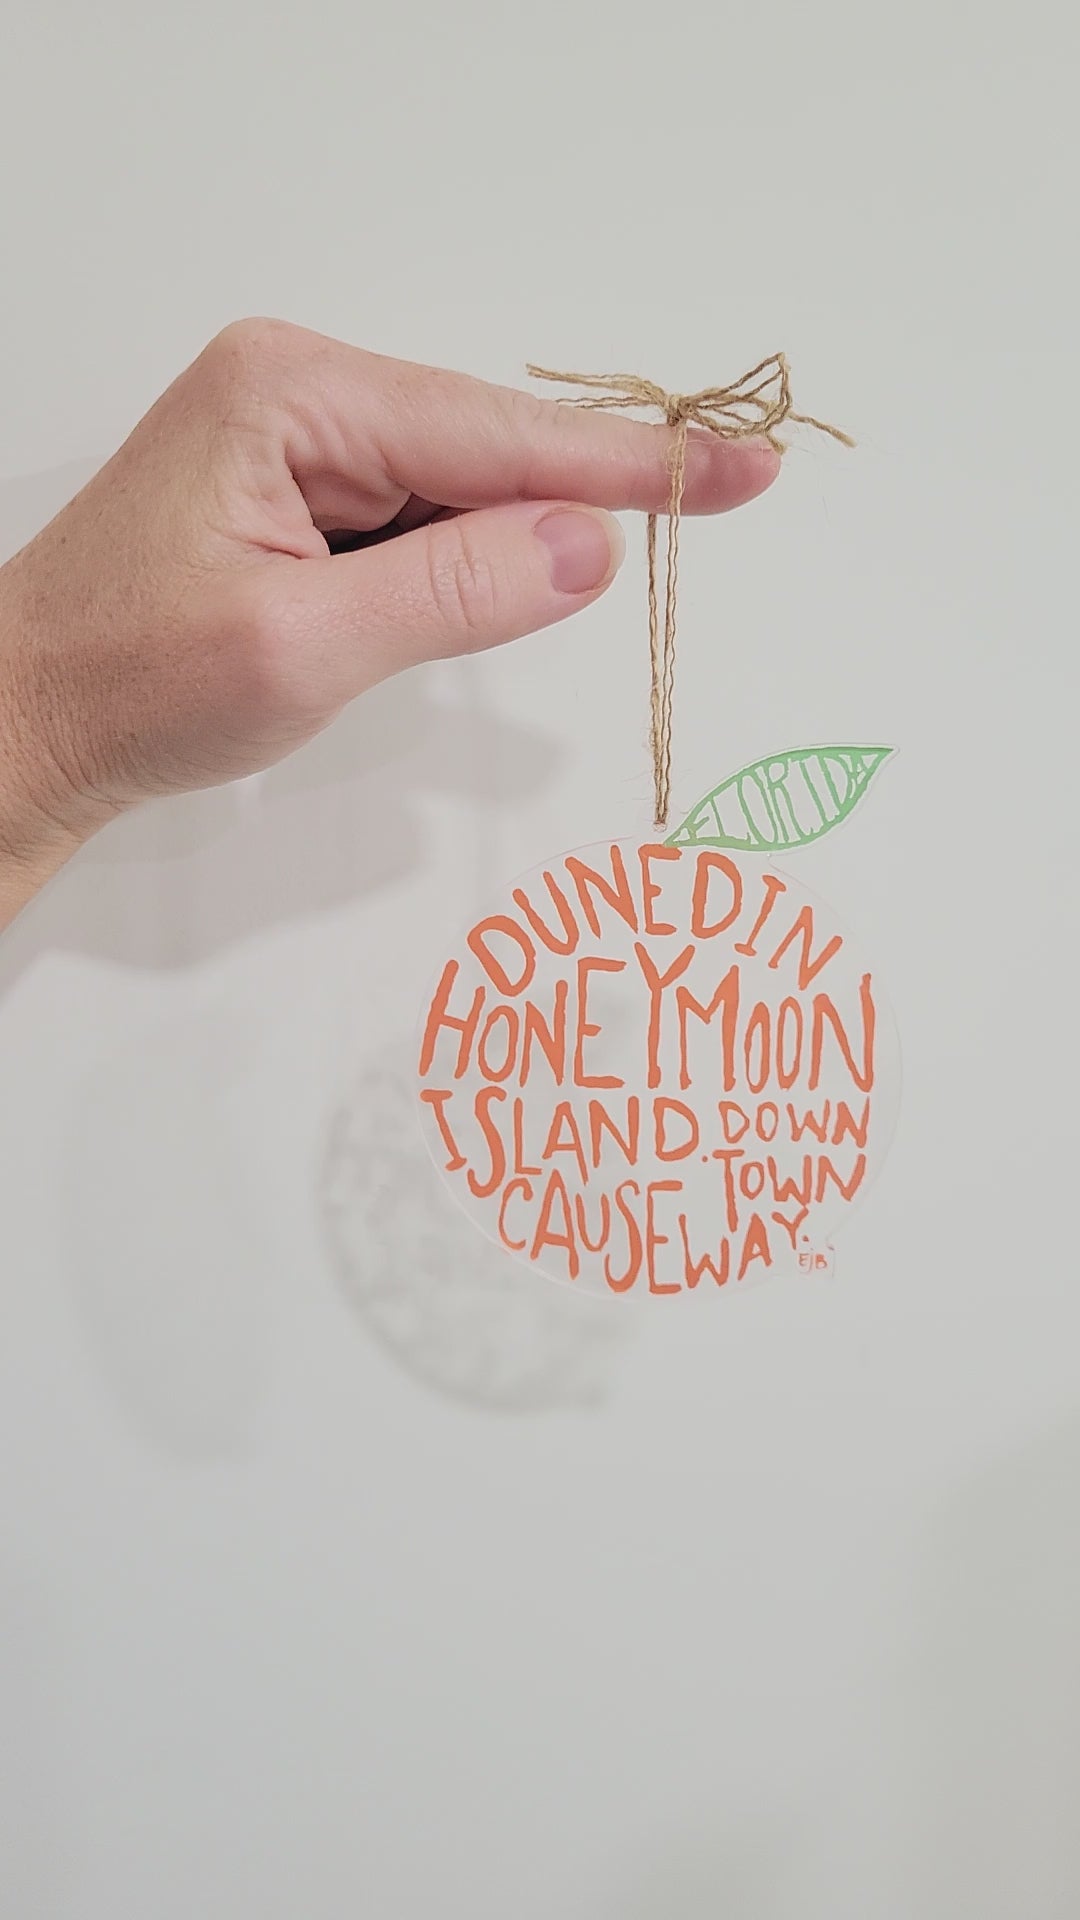 FLORIDA
DUNEDIN
HONEYMOON
ISLAND. DOWN
TOWN
CAUSEWAY.
EJB